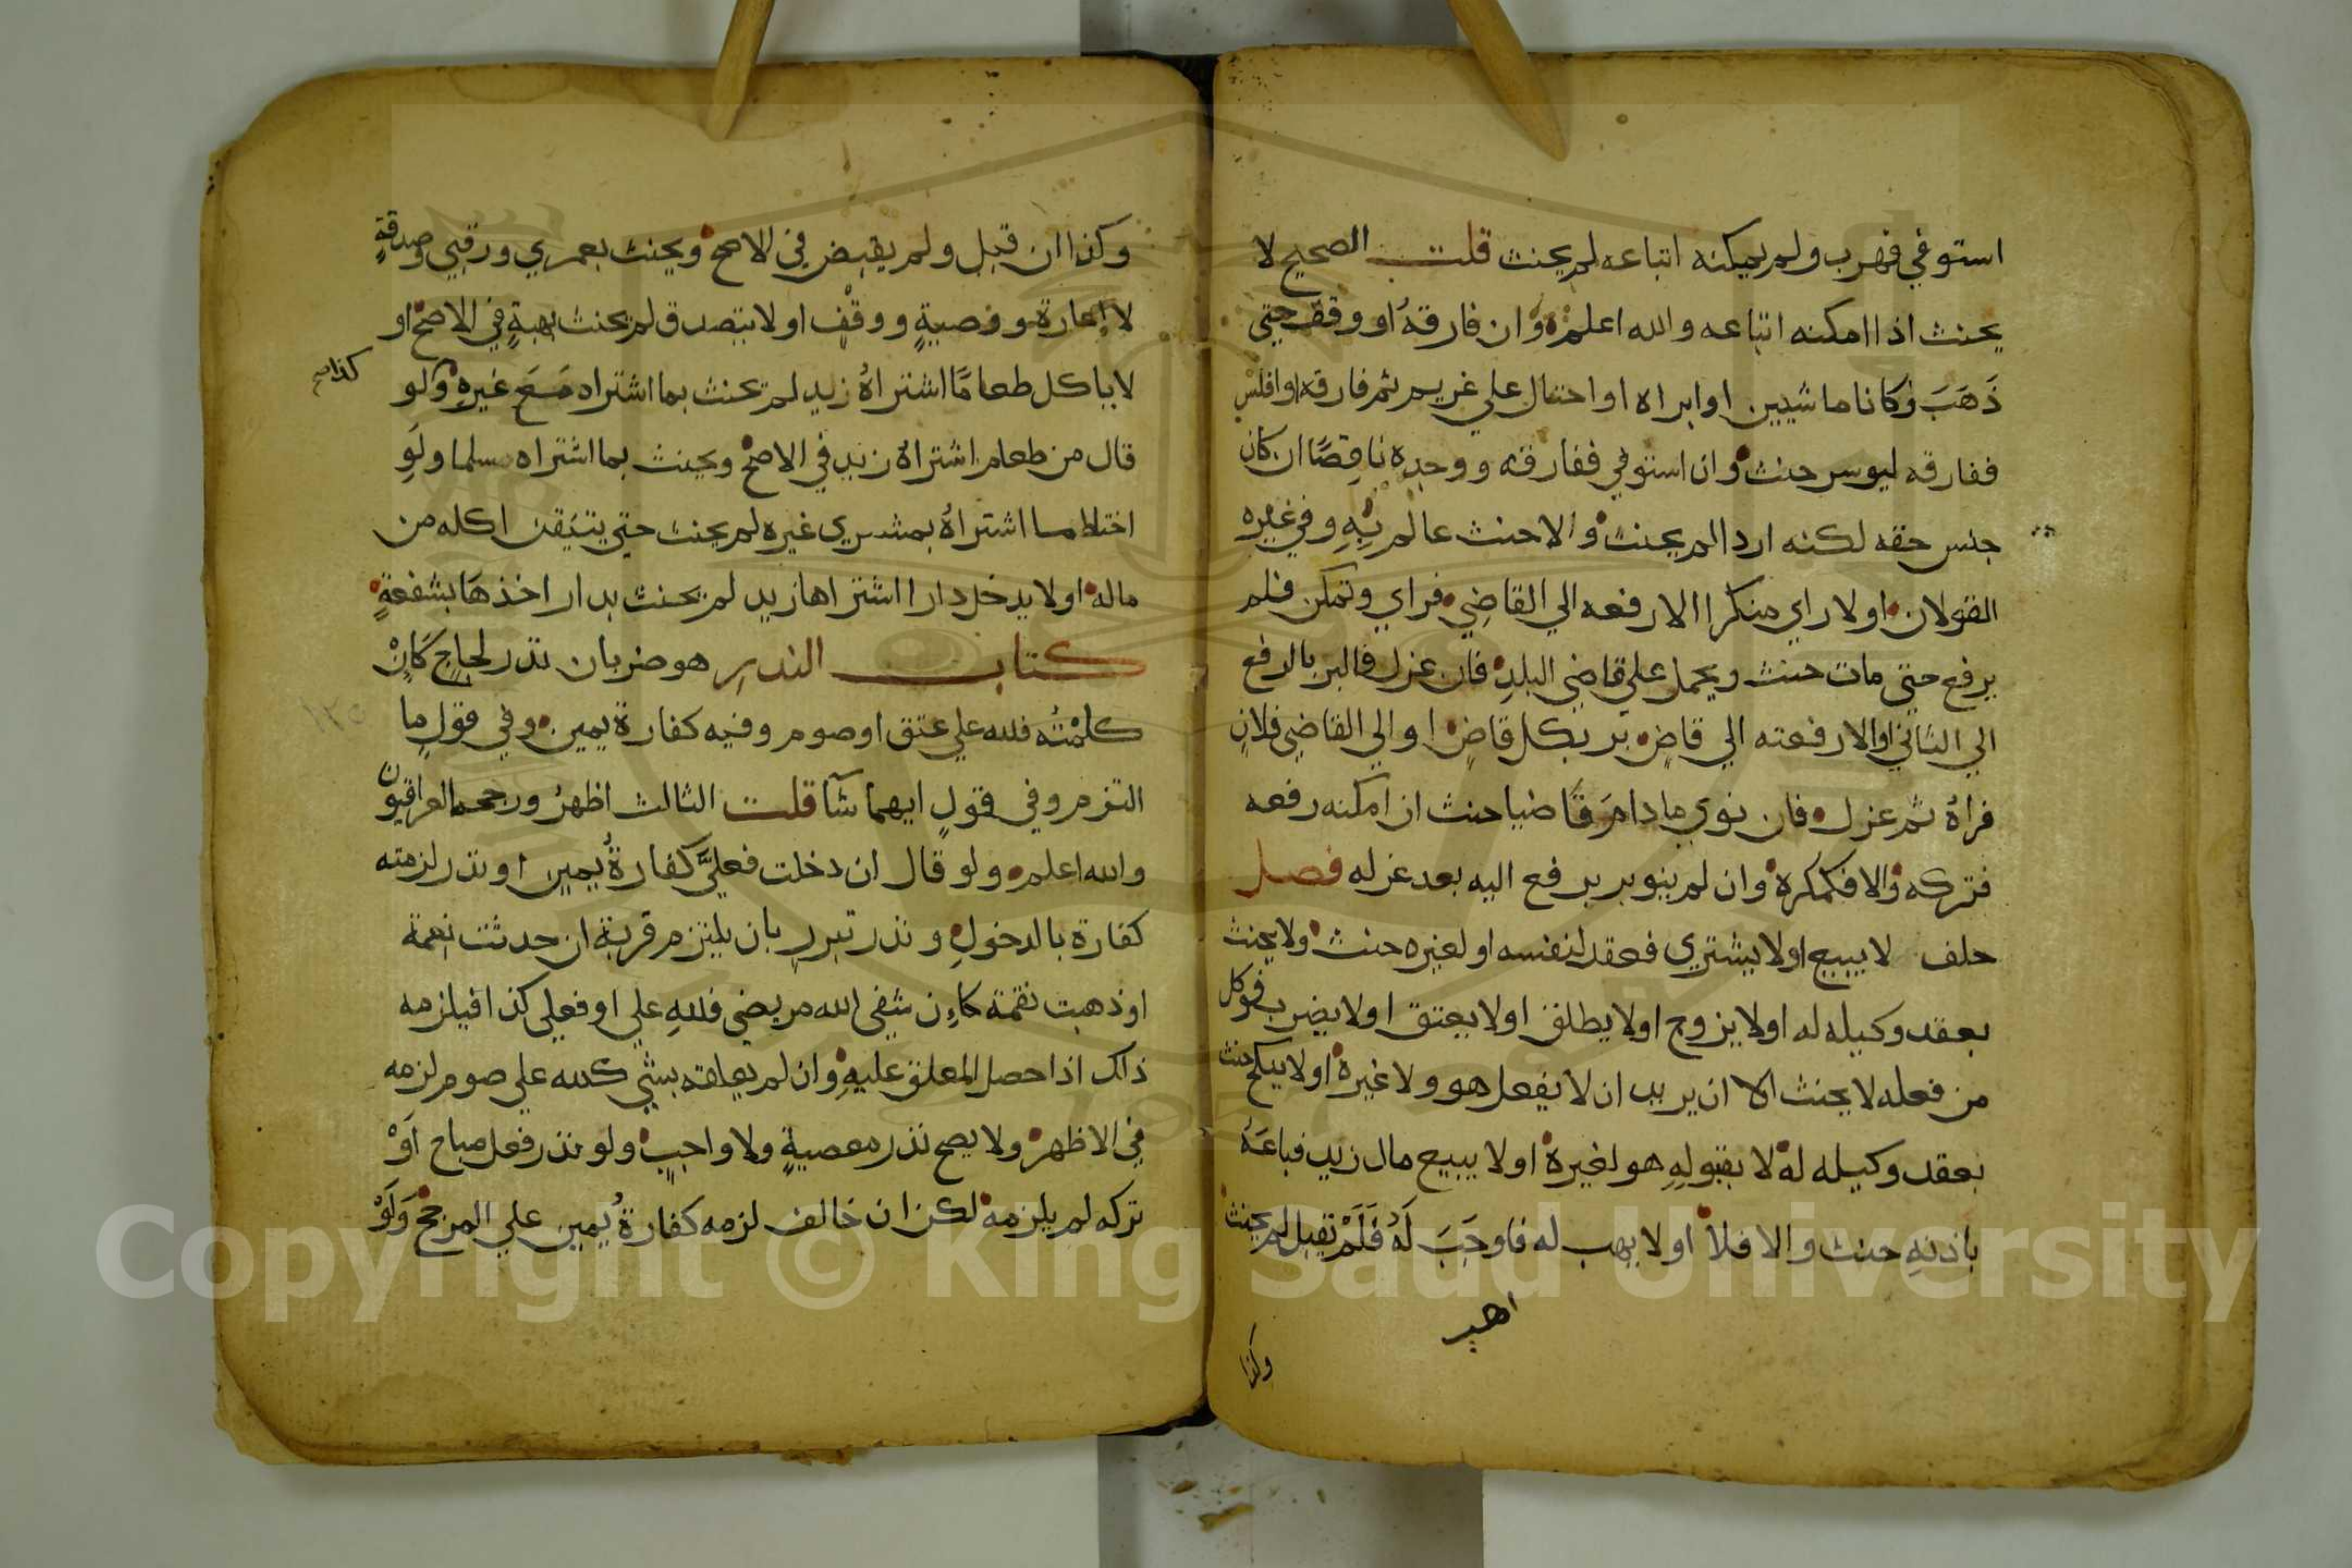 استوفي فهرب ولم يمكنه اتباعه لم يحنث قلت الصحيح لا
يحنث اذا امكنه اتباعه والله اعلم وان فارقهُ او وقف حتي
ذَهَبَ وكانا ماشيين او ابراه او احتال علي غريم ثم فارقه او افلس
ففارقه ليوسر حنث وان استوفي ففارقه ووجده ناقِصًا ان كان
جنس حقه لكنه اردا لم يحنث والا حنث عالم بِهِ وفي غيره
القولان او لا راي منكرا الا رفعه الي القاضِي فراي وتمكن فلم
يرفع حتي مات حنث ويحمل علي قاضي البلدِ فان عزل فالبر بالرفع
الي الثاني او الا رفعته الي قاضٍ بر بكل قاضٍ او الي القاضِي فلانٍ
فراهُ ثم عزل فان نوي ما دامَ قَاضيا حنث ان امكنه رفعه
فتركه والا فكمكره وان لم ينو بر برفع اليه بعد عزله فصل
حلف لا يبيع او لا يشتري فعقد لنفسه او لغيره حنث ولا يحنث
بعقد وكيله له او لا يزوج او لا يطلق او لا يعتق او لا يضرب فوكل
من فعله لا يحنث الا ان يريد ان لا يفعل هو ولا غيره او لا ينكح حنث
بعقد وكيله له لا بقبولِهِ هو لغيره او لا يبيع مال زيد فباعَهُ
باذنهِ حنث والا فلا او لا يهب له فاوجَبَ لَهُ فَلَمْ تقبل لم يحنث
وكذا
وكذا ان قبل ولم يقبض في الاصح ويحنث بعمري ورقبي وصدقةٍ
لا إعارة ووصيةٍ ووقْفٍ او لا يتصدق لم يحنث بهبةٍ في الاصح او
لا ياكل طعامًا اشتراهُ زيد لم يحنث بما اشتراه مَعَ غيرهِ وكو
قال من طعام اشتراهُ زيد في الاصح ويحنث بما اشتراه سلما ولَوِ
اختلط ما اشتراهُ بمشتري غيره لم يحنث حتي يتيقن اكله من
ماله او لا يدخل دارا اشتراها زيد لم يحنث بدار اخذهَا بشفعةٍ
كتاب النذرِ هو ضربان نذر لجاجٍ كَانْ
كلمْتُه فلله علي عتق او صوم وفيه كفارة يمين وفي قولٍ ما
التزم وفي قولٍ ايهما شآ قلت الثالث اظهرُ ورجحه العراقيون
والله اعلم ولو قال ان دخلت فعليَّ كفارةُ يمين او نذر لزمته
كفارة بالدخولِ ونذر تبررٍ بان يلتزم قربة ان حدثت نعمة
او ذهبت نقمة كاءِن شفى الله مريضي فللهِ علي او فعلي كذا فيلزمه
ذالك اذا حصل المعلق عليهِ وان لم يعلقه بشي كلله علي صوم لزمه
في الاظهر ولا يصح نذر معصيةٍ ولا واجبٍ ولو نذر فعل مباح اَوْ
تركه لم يلزمه لكن ان خالف لزمه كفارةُ يمين علي المرجح وَلَوْ
١٢٥
Copyright © King Saud University